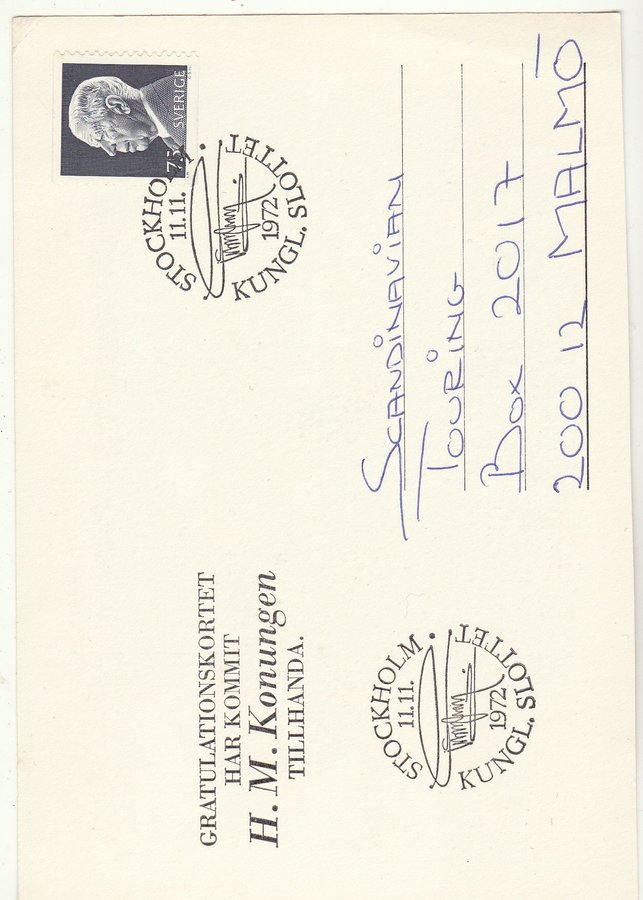 GRATULATIONSKORTET
HAR KOMMIT
H. M. Konungen
TILLHANDA.
STOCKHOLM
11.11.
1972
KUNGL. SLOTTET
SVERIGE
75
STOCKHOLM
11.11.
1972
KUNGL. SLOTTET
SCANDINAVIAN
TOURING
BOX 2017
200 12 MALMÖ